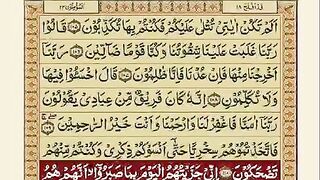 قد افلح ١٨
المؤمنون ٢٣
اَلَمْ تَكُنْ اٰيٰتِيْ تُتْلٰى عَلَيْكُمْ فَكُنْتُمْ بِهَا تُكَذِّبُوْنَ ﴿١٠٥﴾ قَالُوْا
رَبَّنَا غَلَبَتْ عَلَيْنَا شِقْوَتُنَا وَكُنَّا قَوْمًا ضَآلِّيْنَ ﴿١٠٦﴾ رَبَّنَآ
اَخْرِجْنَا مِنْهَا فَاِنْ عُدْنَا فَاِنَّا ظٰلِمُوْنَ ﴿١٠٧﴾ قَالَ اخْسَـُٔوْا فِيْهَا
وَلَا تُكَلِّمُوْنِ ﴿١٠٨﴾ اِنَّهٗ كَانَ فَرِيْقٌ مِّنْ عِبَادِيْ يَقُوْلُوْنَ
رَبَّنَآ اٰمَنَّا فَاغْفِرْ لَنَا وَارْحَمْنَا وَاَنْتَ خَيْرُ الرّٰحِمِيْنَ ﴿١٠٩﴾
فَاتَّخَذْتُمُوْهُمْ سِخْرِيًّا حَتّٰٓى اَنْسَوْكُمْ ذِكْرِيْ وَكُنْتُمْ مِّنْهُمْ
تَضْحَكُوْنَ ﴿١١٠﴾ اِنِّيْ جَزَيْتُهُمُ الْيَوْمَ بِمَا صَبَرُوْٓا اَنَّهُمْ هُمُ